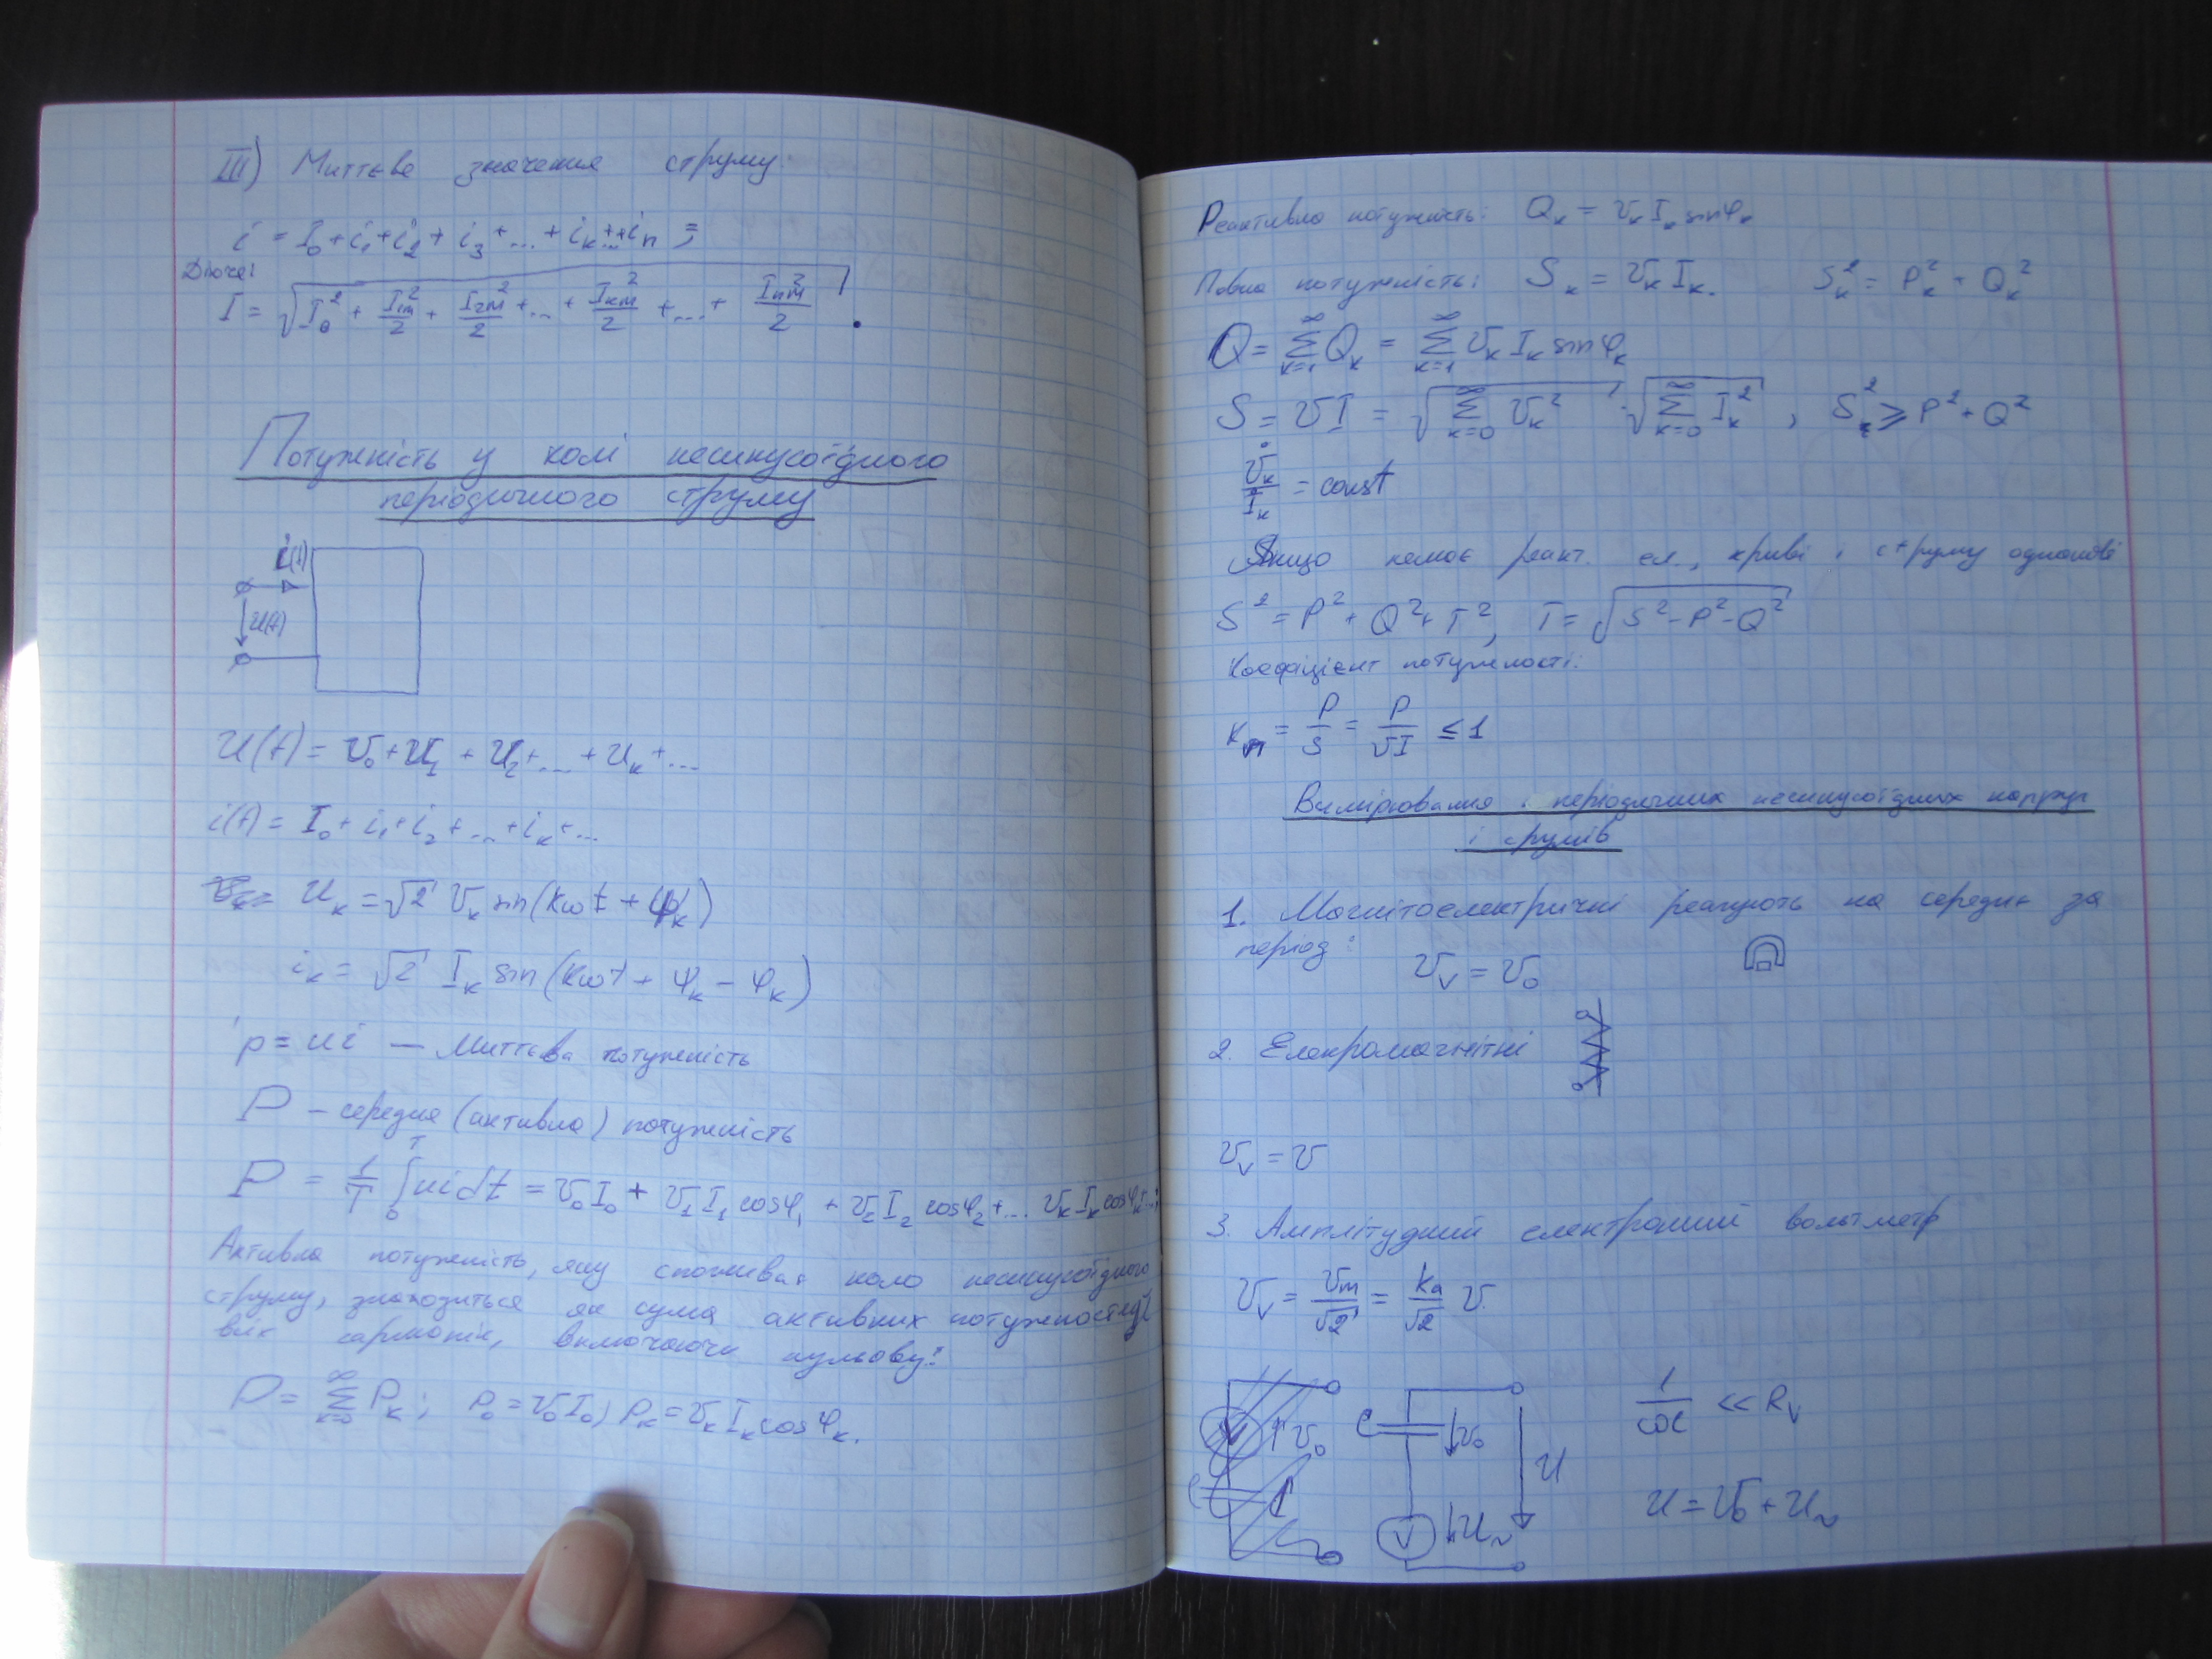 III) Миттєве значення струму:
i = I₀ + i₁ + i₂ + i₃ + ... + iₖ... + iₙ =
Діючі
I = √(I₀² + I₁ₘ²/2 + I₂ₘ²/2 + ... + Iₖₘ²/2 + ... + Iₙₘ²/2)
Потужність у колі несинусоїдного
періодичного струму
i(t)
U(t)
U(t) = U₀ + U₁ + U₂ + ... + Uₖ + ...
i(t) = I₀ + i₁ + i₂ + ... + iₖ + ...
Uₖ = √2 Uₖ sin(kωt + ψₖ)
iₖ = √2 Iₖ sin(kωt + ψₖ - φₖ)
p = ui — Миттєва потужність
P - середня (активна) потужність
P = 1/T ∫₀ᵀ uidt = U₀I₀ + U₁I₁cosφ₁ + U₂I₂cosφ₂ + ... UₖIₖcosφₖ
Активна потужність, яку споживає коло несинусоїдного
струму, знаходиться як сума активних потужностей
всіх гармонік, включаючи нульову:
P = Σₖ₌₀^∞ Pₖ; P₀ = U₀I₀; Pₖ = UₖIₖcosφₖ.
Реактивна потужність: Qₖ = UₖIₖsinφₖ
Повна потужність: Sₖ = UₖIₖ. Sₖ² = Pₖ² + Qₖ²
Q = Σₖ₌₁^∞ Qₖ = Σₖ₌₁^∞ UₖIₖsinφₖ
S = UI = √(Σₖ₌₀^∞ Uₖ²) · √(Σₖ₌₀^∞ Iₖ²), S² ≥ P² + Q²
Uₖ/Iₖ = const
Якщо немає реакт. ел., криві і струму однакові
S² = P² + Q² + T², T = √(S² - P² - Q²)
Коефіцієнт потужності:
Kₘ = P/S = P/UI ≤ 1
Вимірювання періодичних несинусоїдних напруг
і струмів
1. Магнітоелектричні реагують на середнє за
період: Uᵥ = U₀
2. Електромагнітні
Uᵥ = U
3. Амплітудний електронний вольтметр
Uᵥ = Uₘ/√2 = kₐ/√2 U
U₀
C
U₀
V
U~
U
1/ωC << Rᵥ
U = U₀ + U~